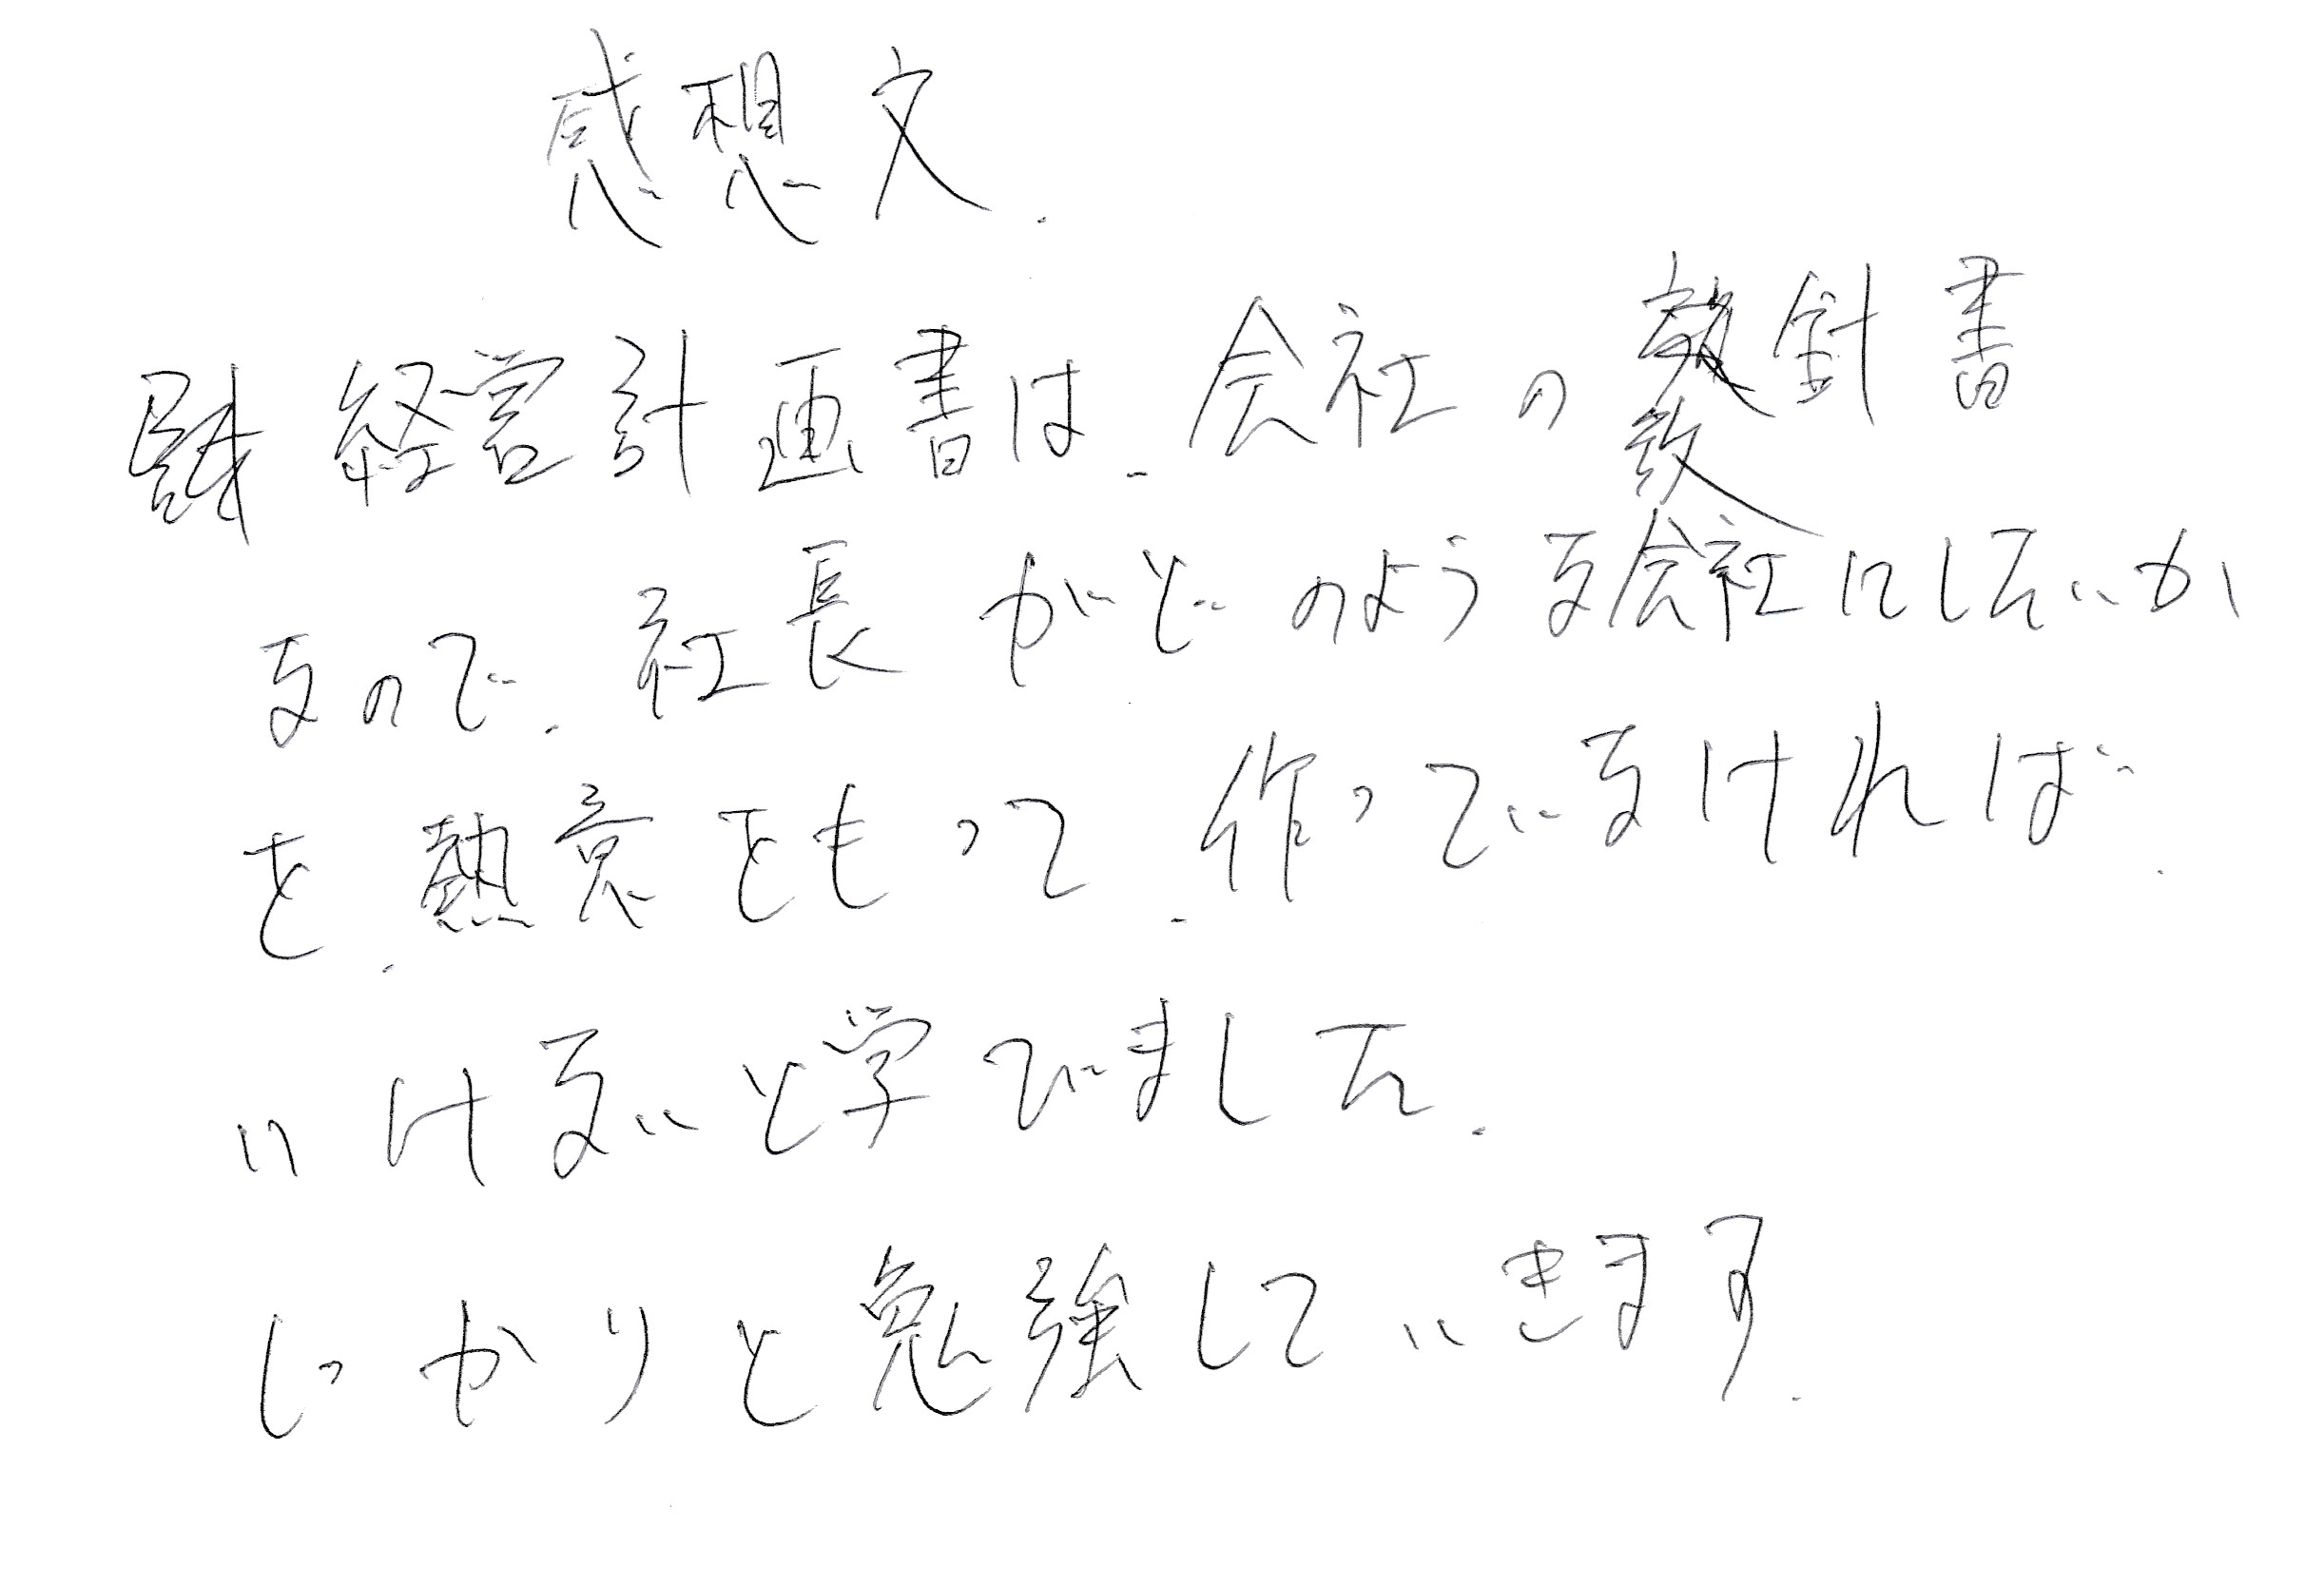 感想文.
経営計画書は、会社の教針書
なので、社長がどのような会社にしたいか
を、熱意をもって、作っていなければ
いけないと学びました.
しっかりと勉強していきます.